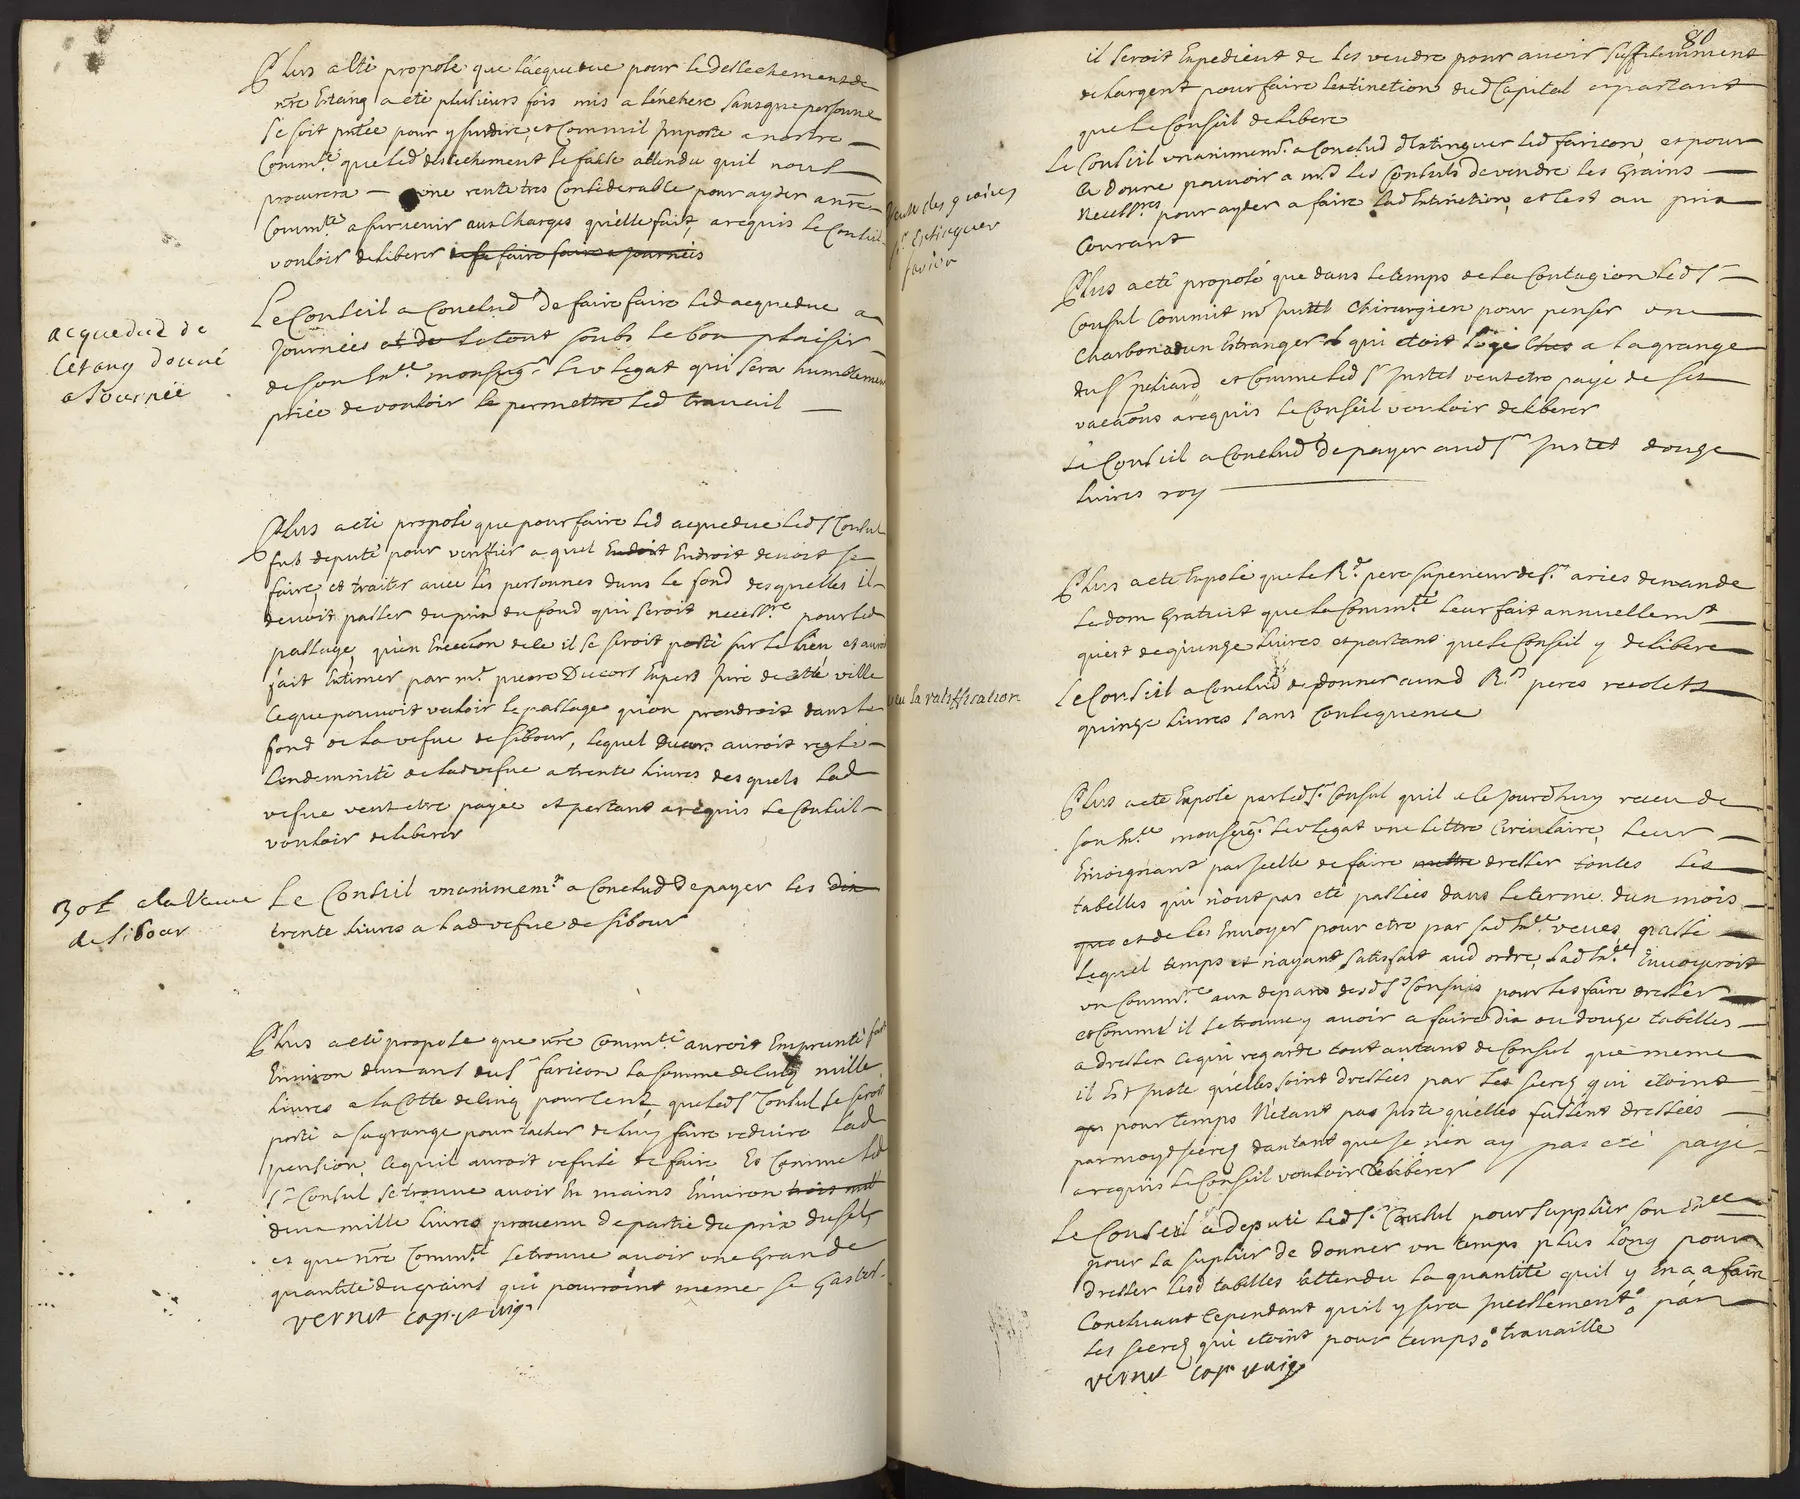 Plus a esté proposé que l'acqueduc pour le dessechement de
nre Estang a eté plusieurs fois mis a l'enchere sans que personne
se soit pntée pour y surdire, et comm'il Importe a nostre
Commte que led dessechement se fasse attendu quil nous
procurera une rente tres Considerable pour ayder a nre
Commte a survenir aux Charges qu'elle fait, a requis le Conseil
vouloir deliberer de se faire faire a journéés
acqueduc de
l'etang donné
a Journéé
Le Conseil a Conclud de faire faire led acqueduc a
journées et de le tout soubs le bon plaisir
de son Exce monseigr le v legat qui sera humblement
priéé de vouloir le permettre led travail
Plus a eté proposé que pour faire led acqueduc led Sr Consul
fut deputé pour veriffier a quel Endoit Endroit devoit se
faire, et traiter avec les personnes dans le fond desquelles il
devoit passer du prix du fond qui seroit necessre pour led
passage, qu'en Execuon de ce il se seroit porté sur le lieu et auroit
fait Estimer par mr pierre Ducors Expert Juré de cette ville
ce que pouvoit valoir le passage qu'on prendroit dans le
fond de la vefue de sibour, lequel Ducors auroit reglé
l'indemnité de lad vefue a trente livres desquels lad
vefue veut etre payéé et partant a requis le Conseil
vouloir deliberer
30 l a la Veuve
de sibour
Le Conseil unanimemt a Conclud de payer les dix
trente livres a lad vefue de sibour
Plus a eté proposé que nre Commté auroit Emprunté fait
Environ deux ans du Sr faricon la somme de cinq mille
livres a la Cotte de cinq pour cent, que led Sr Consul se seroit
porté a sa grange pour tacher de luy faire reduire lad
pension, ce qu'il auroit refusé de faire, Et Comme led
Sr Consul se trouve avoir En mains Environ trois mil
deux mille livres provenu de partie du prix du sel,
et que nre Commté se trouve avoir une Grande
quantité du grains qui pourroint meme se Gaster
vernet capn et vig
80
il seroit Expedient de les vendre pour avoir suffisemment
de largent pour faire lextinction dud Capital et partant
que le Conseil delibere
Vente des grains
pr Extinguer
faricon
Le Conseil unanimemt a Conclud d'Extinguer led faricon, et pour
ce donne pouvoir a mrs les Consuls de vendre les Grains
Necessres pour ayder a faire lad Extinction, et c'est au prix
Courant
Plus a eté proposé que dans le temps de la Contagion led Sr
Consul Commit mr Justet Chirurgien pour penser une
Charbon a un Estranger qui etoit logé ches a la grange
du Sr peliard et Comme led Sr Justet veut etre payé de ses
vacaons a requis le Conseil vouloir deliberer
Le Conseil a Conclud de payer aud Sr Justet douze
livres roy
Plus a eté Exposé que le Rd pere superieur de St aries demande
le dom Gratuit que la Commte leur fait annuellemt
quest de quinze livres et partant que le Conseil y delibere
veu la ratiffication
Le Conseil a Conclud de donner aud Rds peres recolets
quinze livres sans Consequence
Plus a eté Exposé par led Sr Consul quil a le Jourdhuy receu de
son Exce monseigr le v legat une lettre Circulaire, leur
Enjoignant par Jcelle de faire mettre dresser toutes les
tabelles qui n'ont pas eté passéés dans le terme d'un mois
que et de les Envoyer pour etre par sad Exce veues passé
lequel temps et n'ayant satisfait aud ordre, sad Exce Envoyeroit
un Commre aux depans desds Srs Consuls pour les faire dresser
et Comm'il se trouve y avoir a faire dix ou douze tabelles
a dresser ce qui regarde tout autant de Consul que meme
il Est Juste qu'elles soint dresséés par les secres qui etoint
qu pour temps N'etant pas juste qu'elles fussent dresséés
par moy d secre d'autant que je n'en ay pas eté payé
a requis le Conseil vouloir deliberer
Le Conseil a deputé led Sr Consul pour supplier son Exce
pour la suplier de donner un temps plus long pour
dresser lesd tabelles attendu la quantité quil y En a a faire
Concluant Cependant quil y sera Jncessement par
les secres qui etoint pour temps travaillé
vernet capn et vig